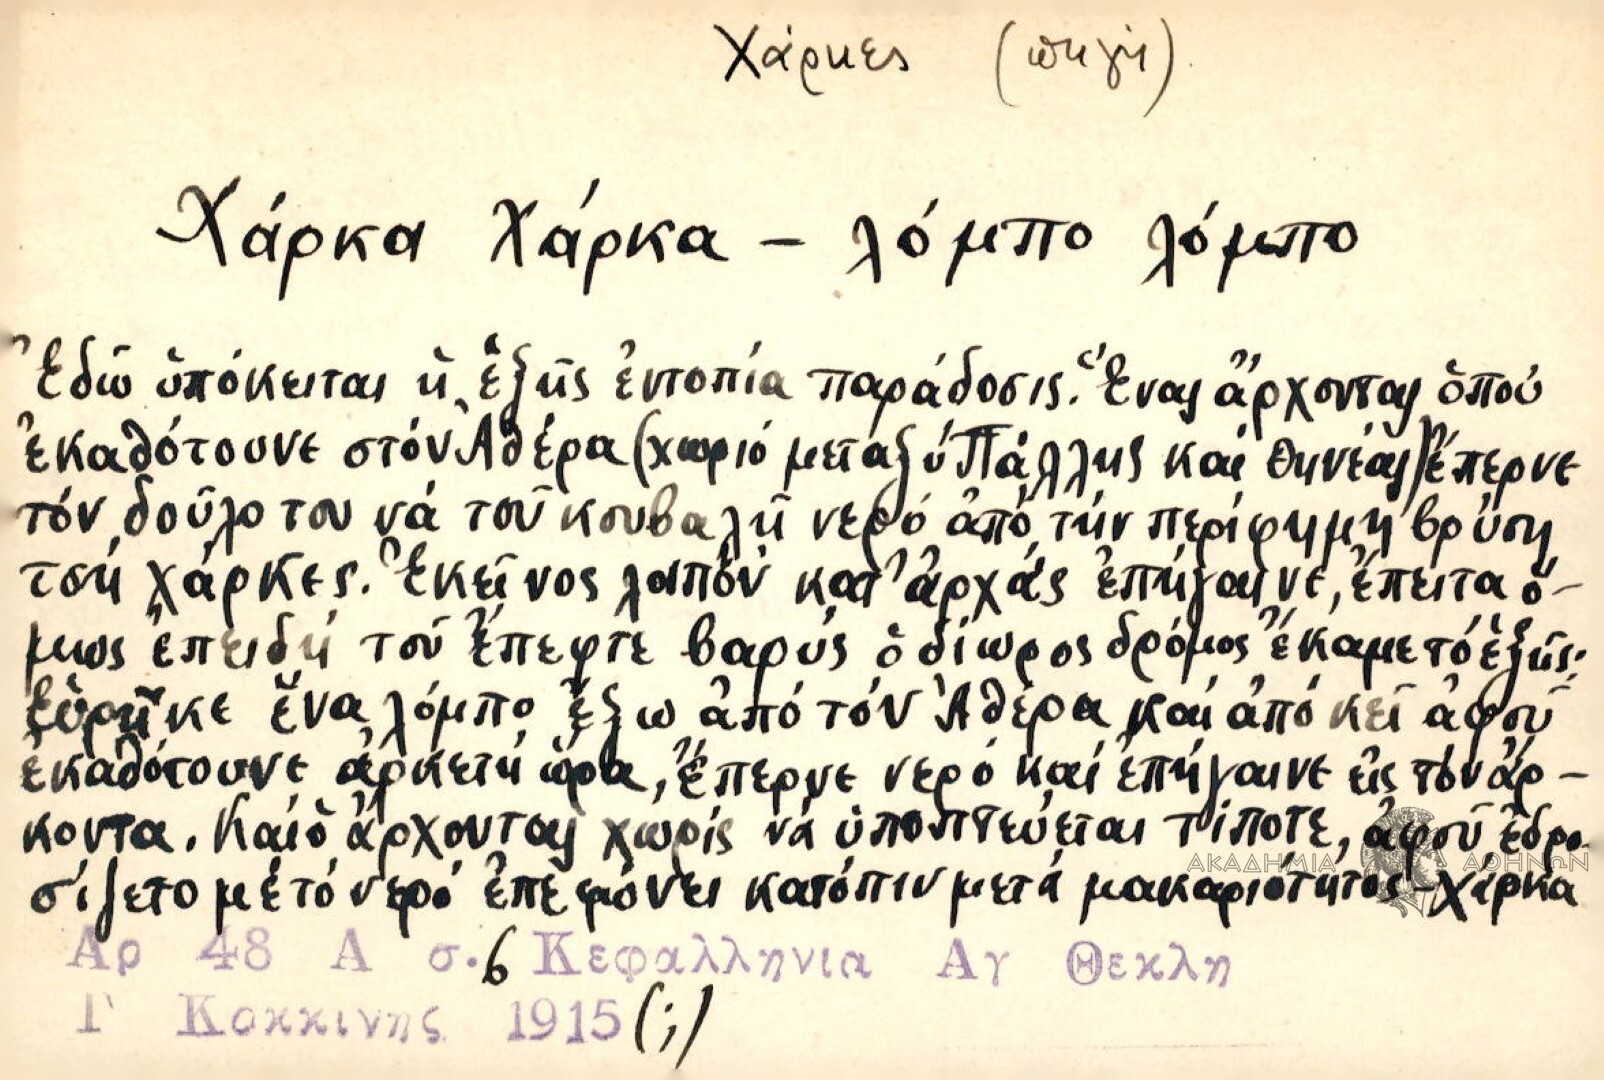 Χάρκες (πηγή).
Χάρκα Χάρκα - λόμπο λόμπο
Ἐδῶ ὑπόκειται ἡ ἑξῆς ἐντοπία παράδοσις. Ἕνας ἄρχοντας ὁποὺ
ἐκαθότουνε στόν Ἀθέρα (χωριό μεταξύ Πάλλης καί Θηνέας) ἔπερνε
τόν δοῦλο του νά τοῦ κουβαλῆ νερό ἀπό τήν περίφημη βρύση
τσή χάρκες. Ἐκεῖνος λοιπόν κατ' ἀρχάς ἐπήγαινε, ἔπειτα ὅ-
μως ἐπειδή τοῦ ἔπεφτε βαρύς ὁ δίωρος δρόμος ἔκαμε τό ἑξῆς:
Εὑρῆκε ἕνα λόμπο ἔξω ἀπό τόν Ἀθέρα καί ἀπό κεῖ ἀφοῦ
ἐκαθότουνε ἀρκετή ὥρα, ἔπερνε νερό καί ἐπήγαινε εἰς τόν ἄρ-
κοντα. Καί ὁ ἄρχοντας χωρίς νά ὑποπτεύεται τίποτε, ἀφοῦ ἐδρο-
σίζετο μέ τό νερό ἐπεφώνει κατόπιν μετά μακαριότητος - Χάρκα
ΑΚΑΔΗΜΙΑ ΑΘΗΝΩΝ
Αρ 48 Α σ. 6 Κεφαλληνια Αγ Θεκλη
Γ Κοκκινης 1915 (;)